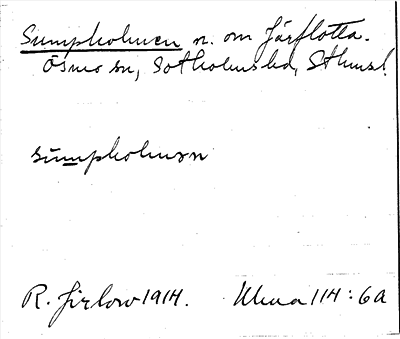 Sumpholmen n. om Järflotta.
Ösmo sn, Sotholms hd, Sthms l.
sùmpholmən
R. Jirlow 1914. Uluа 114:6a